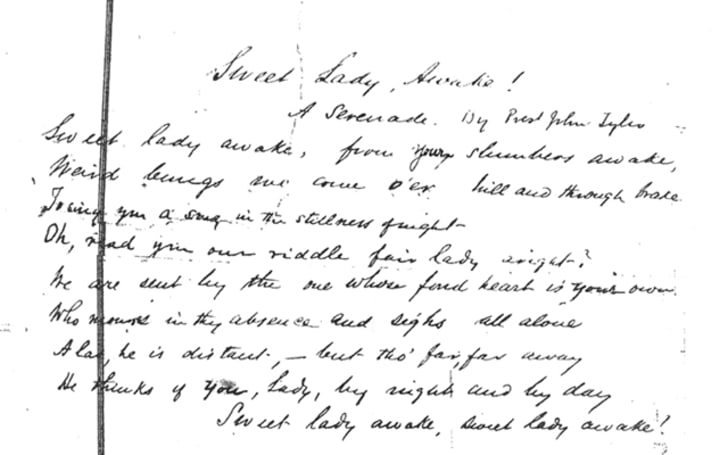 Sweet Lady, Awake!
A Serenade. By Prest John Tyler
Sweet lady awake, from your slumbers awake,
Weird beings we come o'er hill and through brake
To sing you a song in the stillness of night
Oh, read you our riddle fair lady aright?
We are sent by the one whose fond heart is your own.
Who mourns in thy absence and sighs all alone
Alas, he is distant, — but tho' far, far away
He thinks of you, Lady, by night and by day
Sweet lady awake, sweet lady awake!